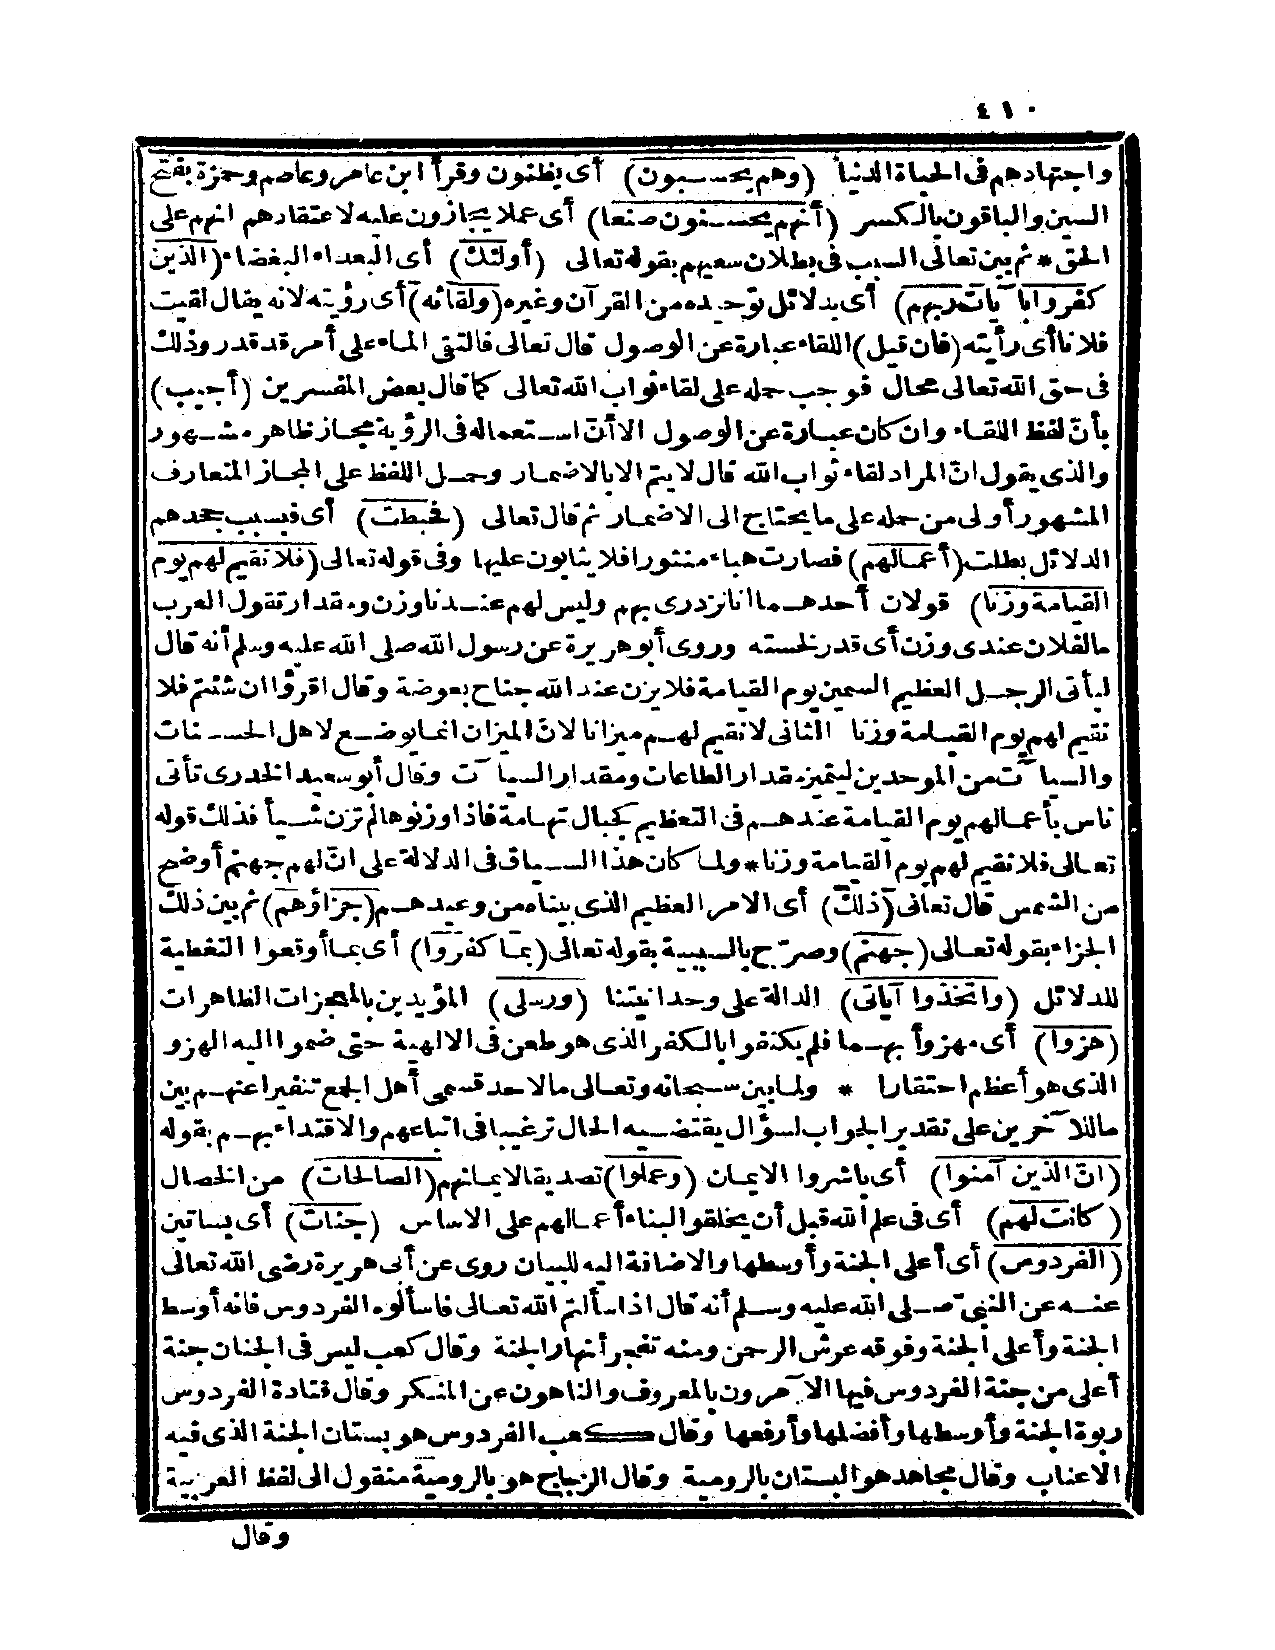 ٤١٠
واجتهادهم فى الحياة الدنيا (وهم يحسبون) أى يظنون وقرأ ابن عامر وعاصم وحمزة بفتح
السين والباقون بالكسر (أنهم يحسنون صنعا) أى عملا يجازون عليه لاعتقادهم انهم على
الحق * ثم بين تعالى السبب فى بطلان سعيهم بقوله تعالى (أولئك) أى البعداء البغضاء (الذين
كفروا بآيات ربهم) أى بدلائل توحيده من القرآن وغيره (ولقائه) أى رؤيته لانه يقال لقيت
فلانا أى رأيته (فان قيل) اللقاء عبارة عن الوصول قال تعالى فالتقى الماء على أمر قد قدر وذلك
فى حق الله تعالى محال فوجب حمله على لقاء ثواب الله تعالى كما قال بعض المفسرين (أجيب)
بأنّ لفظ اللقاء وان كان عبارة عن الوصول الا أنّ استعماله فى الرؤية مجاز ظاهر مشهور
والذى يقول انّ المراد لقاء ثواب الله قال لا يتم الا بالاضمار وحمل اللفظ على المجاز المتعارف
المشهور أولى من حمله على ما يحتاج الى الاضمار ثم قال تعالى (فحبطت) أى فبسبب جحدهم
الدلائل بطلت (أعمالهم) فصارت هباء منثورا فلا يثابون عليها وفى قوله تعالى (فلا نقيم لهم يوم
القيامة وزنا) قولان أحدهما انا نزدرى بهم وليس لهم عندنا وزن ومقدار تقول العرب
مالفلان عندى وزن أى قدر لخسته وروى أبو هريرة عن رسول الله صلى الله عليه وسلم أنه قال
ليأتى الرجل العظيم السمين يوم القيامة فلا يزن عند الله جناح بعوضة وقال اقرؤا ان شئتم فلا
نقيم لهم يوم القيامة وزنا الثانى لا نقيم لهم ميزانا لانّ الميزان انما يوضع لاهل الحسنات
والسيآت من الموحدين ليتميز مقدار الطاعات ومقدار السيآت وقال أبو سعيد الخدرى تأتى
ناس بأعمالهم يوم القيامة عندهم فى التعظيم كجبال تهامة فاذا وزنوها لم تزن شيأ فذلك قوله
تعالى فلا نقيم لهم يوم القيامة وزنا * ولما كان هذا السياق فى الدلالة على انّ لهم جهنم أوضح
من الشمس قال تعالى (ذلك) أى الامر العظيم الذى بيناه من وعيدهم (جزاؤهم) ثم بين ذلك
الجزاء بقوله تعالى (جهنم) وصرّح بالسببية بقوله تعالى (بما كفروا) أى بما أوقعوا التغطية
للدلائل (واتخذوا آياتى) الدالة على وحدانيتنا (ورسلى) المؤيدين بالمعجزات الظاهرات
(هزوا) أى مهزوأ بهما فلم يكتفوا بالكفر الذى هو طعن فى الالهية حتى ضموا اليه الهزو
الذى هو أعظم احتقارا * ولما بين سبحانه وتعالى ما لاحد قسمى أهل الجمع تنفيرا عنهم بين
ما للآخرين على تقدير الجواب لسؤال يقتضيه الحال ترغيبا فى اتباعهم والاقتداء بهم بقوله
(انّ الذين آمنوا) أى باشروا الايمان (وعملوا) تصديقا لايمانهم (الصالحات) من الخصال
(كانت لهم) أى فى علم الله قبل أن يخلقوا لبناء أعمالهم على الاساس (جنات) أى بساتين
(الفردوس) أى أعلى الجنة وأوسطها والاضافة اليه للبيان روى عن أبى هريرة رضى الله تعالى
عنه عن النبىّ صلى الله عليه وسلم أنه قال اذا سألتم الله تعالى فاسألوه الفردوس فانه أوسط
الجنة وأعلى الجنة وفوقه عرش الرحمن ومنه تفجر أنهار الجنة وقال كعب ليس فى الجنان جنة
أعلى من جنة الفردوس فيها الآمرون بالمعروف والناهون عن المنكر وقال قتادة الفردوس
ربوة الجنة وأوسطها وأفضلها وأرفعها وقال كعب الفردوس هو بستان الجنة الذى فيه
الاعناب وقال مجاهد هو البستان بالرومية وقال الزجاج هو بالرومية منقول الى لفظ العربية
وقال